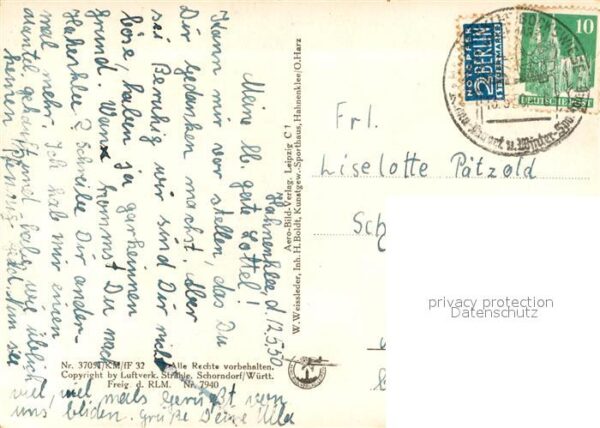 Hahnenklee, d. 12.5.50
Meine lb. gute Lottel!
Kann mir vor stellen, das Du
Dir gedanken machst. Aber
sei Beruhig wir sind Dir nicht
böse, haben ja gar keinen
grund. Wann kommst Du nach
Hahnklee? Schreibe Dir ander-
mal mehr. Ich hab mir einen
Mantel gekauft und habe wie üblich
keinen Pfennig Geld. Nun sei
viel, viel mals gegrüßt von
uns beiden. Grüße Deine Ulla
Aero-Bild-Verlag, Leipzig C 1
W. Weissleder, Inh. H. Boldt, Kunstgew.-Sporthaus, Hahnenklee/O.Harz
Nr. 37054/KM/fF 32 Alle Rechte vorbehalten.
Copyright by Luftverk. Strähle, Schorndorf/Württ.
Freig. d. RLM. Nr. 7940
NOTOPFER
2 BERLIN
STEUERMARKE
10
DEUTSCHE POST
Frl.
Liselotte Pätzold
Sch
privacy protection
Datenschutz